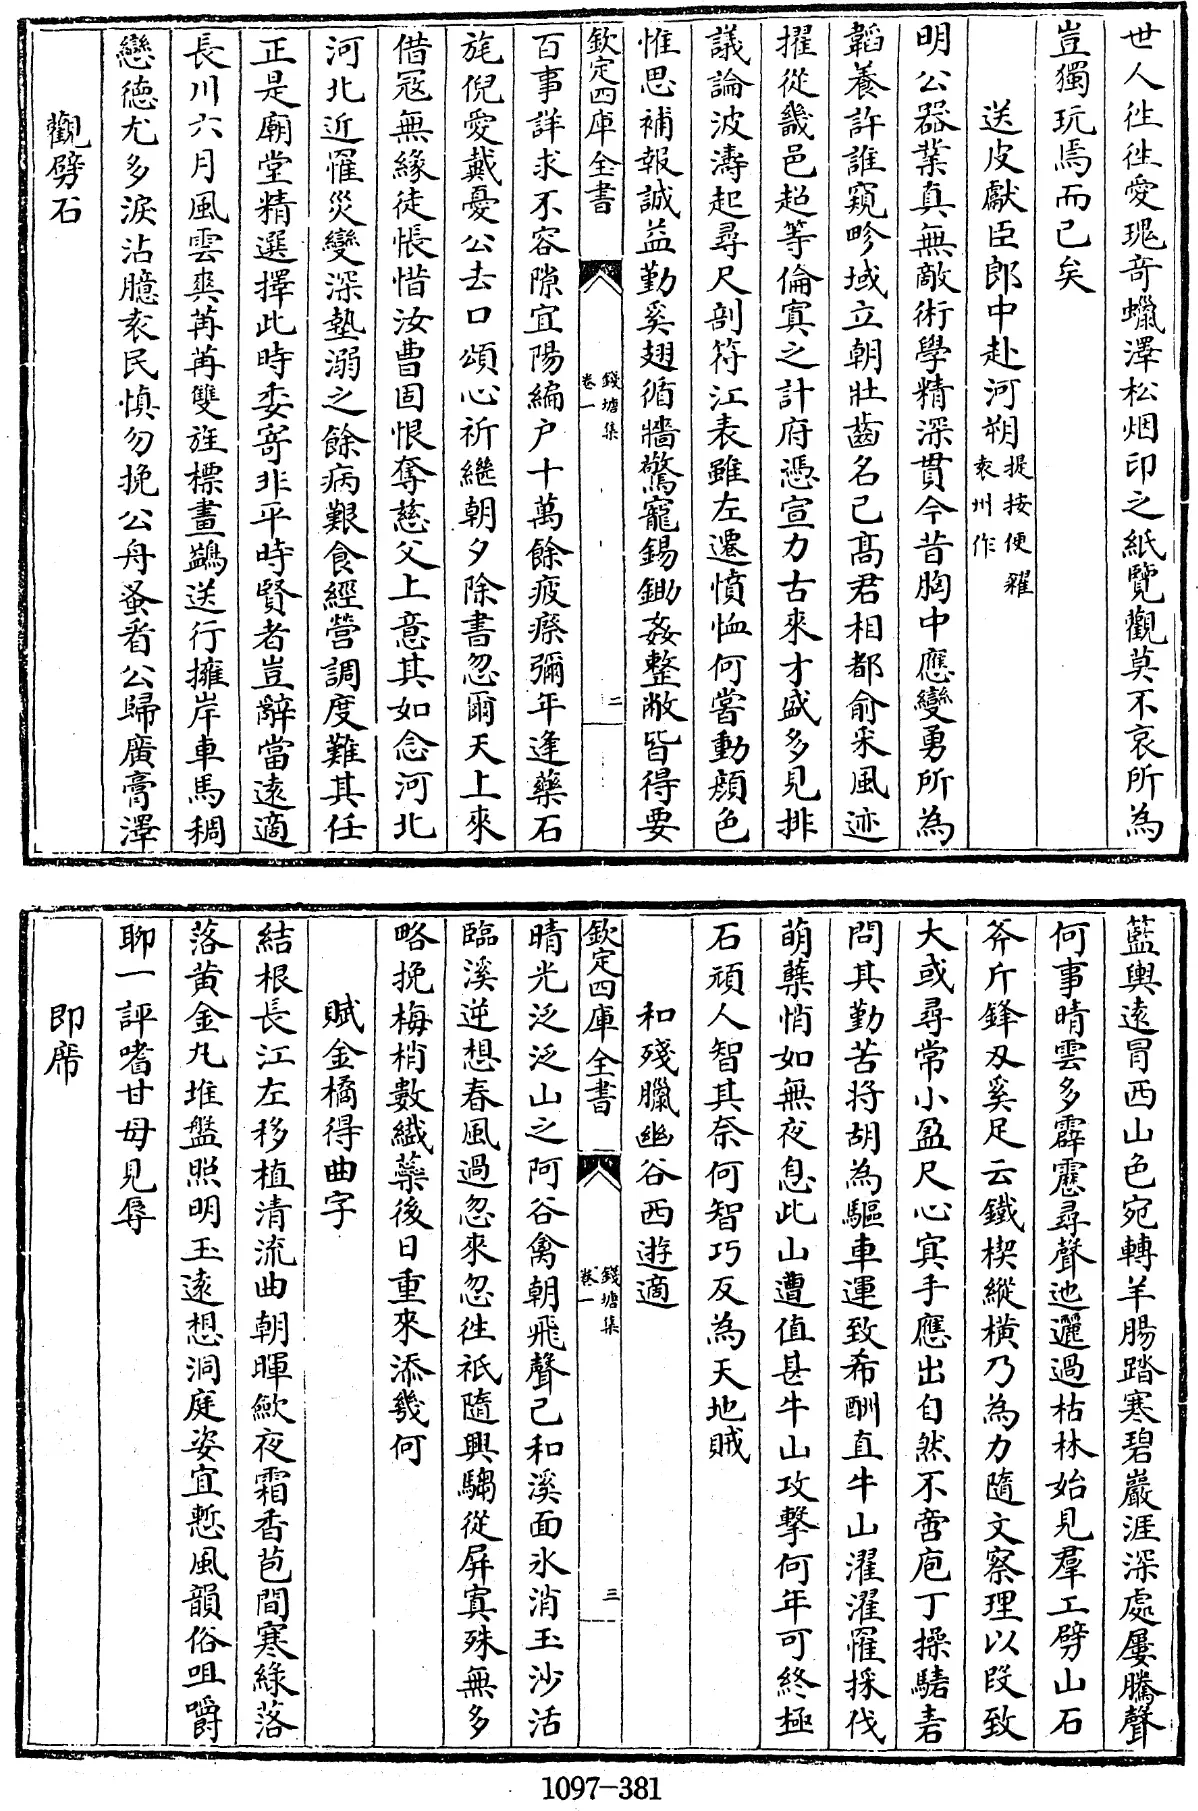 世人徃徃愛瑰竒蠟澤松烟印之紙覽觀莫不哀所為
豈獨玩焉而已矣
送皮獻臣郎中赴河朔提按便糴袁州作
明公器業真無敵術學精深貫今昔胸中應變勇所為
韜養許誰窺畛域立朝壯齒名已髙君相都俞采風迹
擢從畿邑超等倫寘之計府憑宣力古來才盛多見排
議論波濤起尋尺剖符江表雖左遷憤恤何嘗動顔色
惟思補報誠益勤奚翅循牆驚寵錫鋤姦整敝皆得要
欽定四庫全書
錢塘集
卷一
二
百事詳求不容隙宜陽編户十萬餘疲瘵彌年逢藥石
旄倪愛戴憂公去口頌心祈繼朝夕除書忽爾天上來
借冦無緣徒悵惜汝曹固恨奪慈父上意其如念河北
河北近罹災變深墊溺之餘病艱食經營調度難其任
正是廟堂精選擇此時委寄非平時賢者豈辭當逺適
長川六月風雲爽苒苒雙旌標畫鷁送行擁岸車馬稠
戀徳尤多淚沾臆袁民慎勿挽公舟蚤看公歸廣膏澤
觀劈石
藍輿逺冐西山色宛轉羊腸踏寒碧巖涯深處屢騰聲
何事晴雲多霹靂尋聲迆邐過枯林始見羣工劈山石
斧斤鋒刄奚足云鐵楔縱橫乃為力隨文察理以段致
大或尋常小盈尺心寘手應出自然不啻庖丁操騞砉
問其勤苦將胡為驅車運致希酬直牛山濯濯罹採伐
萌蘖悄如無夜息此山遭值甚牛山攻擊何年可終極
石頑人智其奈何智巧反為天地賊
和殘臘幽谷西遊適
欽定四庫全書
錢塘集
卷一
三
晴光泛泛山之阿谷禽朝飛聲已和溪面氷消玉沙活
臨溪逆想春風過忽來忽徃祇隨興騶從屏寘殊無多
略挽梅梢數纖蘂後日重來添幾何
賦金橘得曲字
結根長江左移植清流曲朝暉歛夜霜香苞間寒緑落
落黄金丸堆盤照明玉逺想洞庭姿宜慙風韻俗咀嚼
聊一評嗜甘毋見辱
即席
1097-381